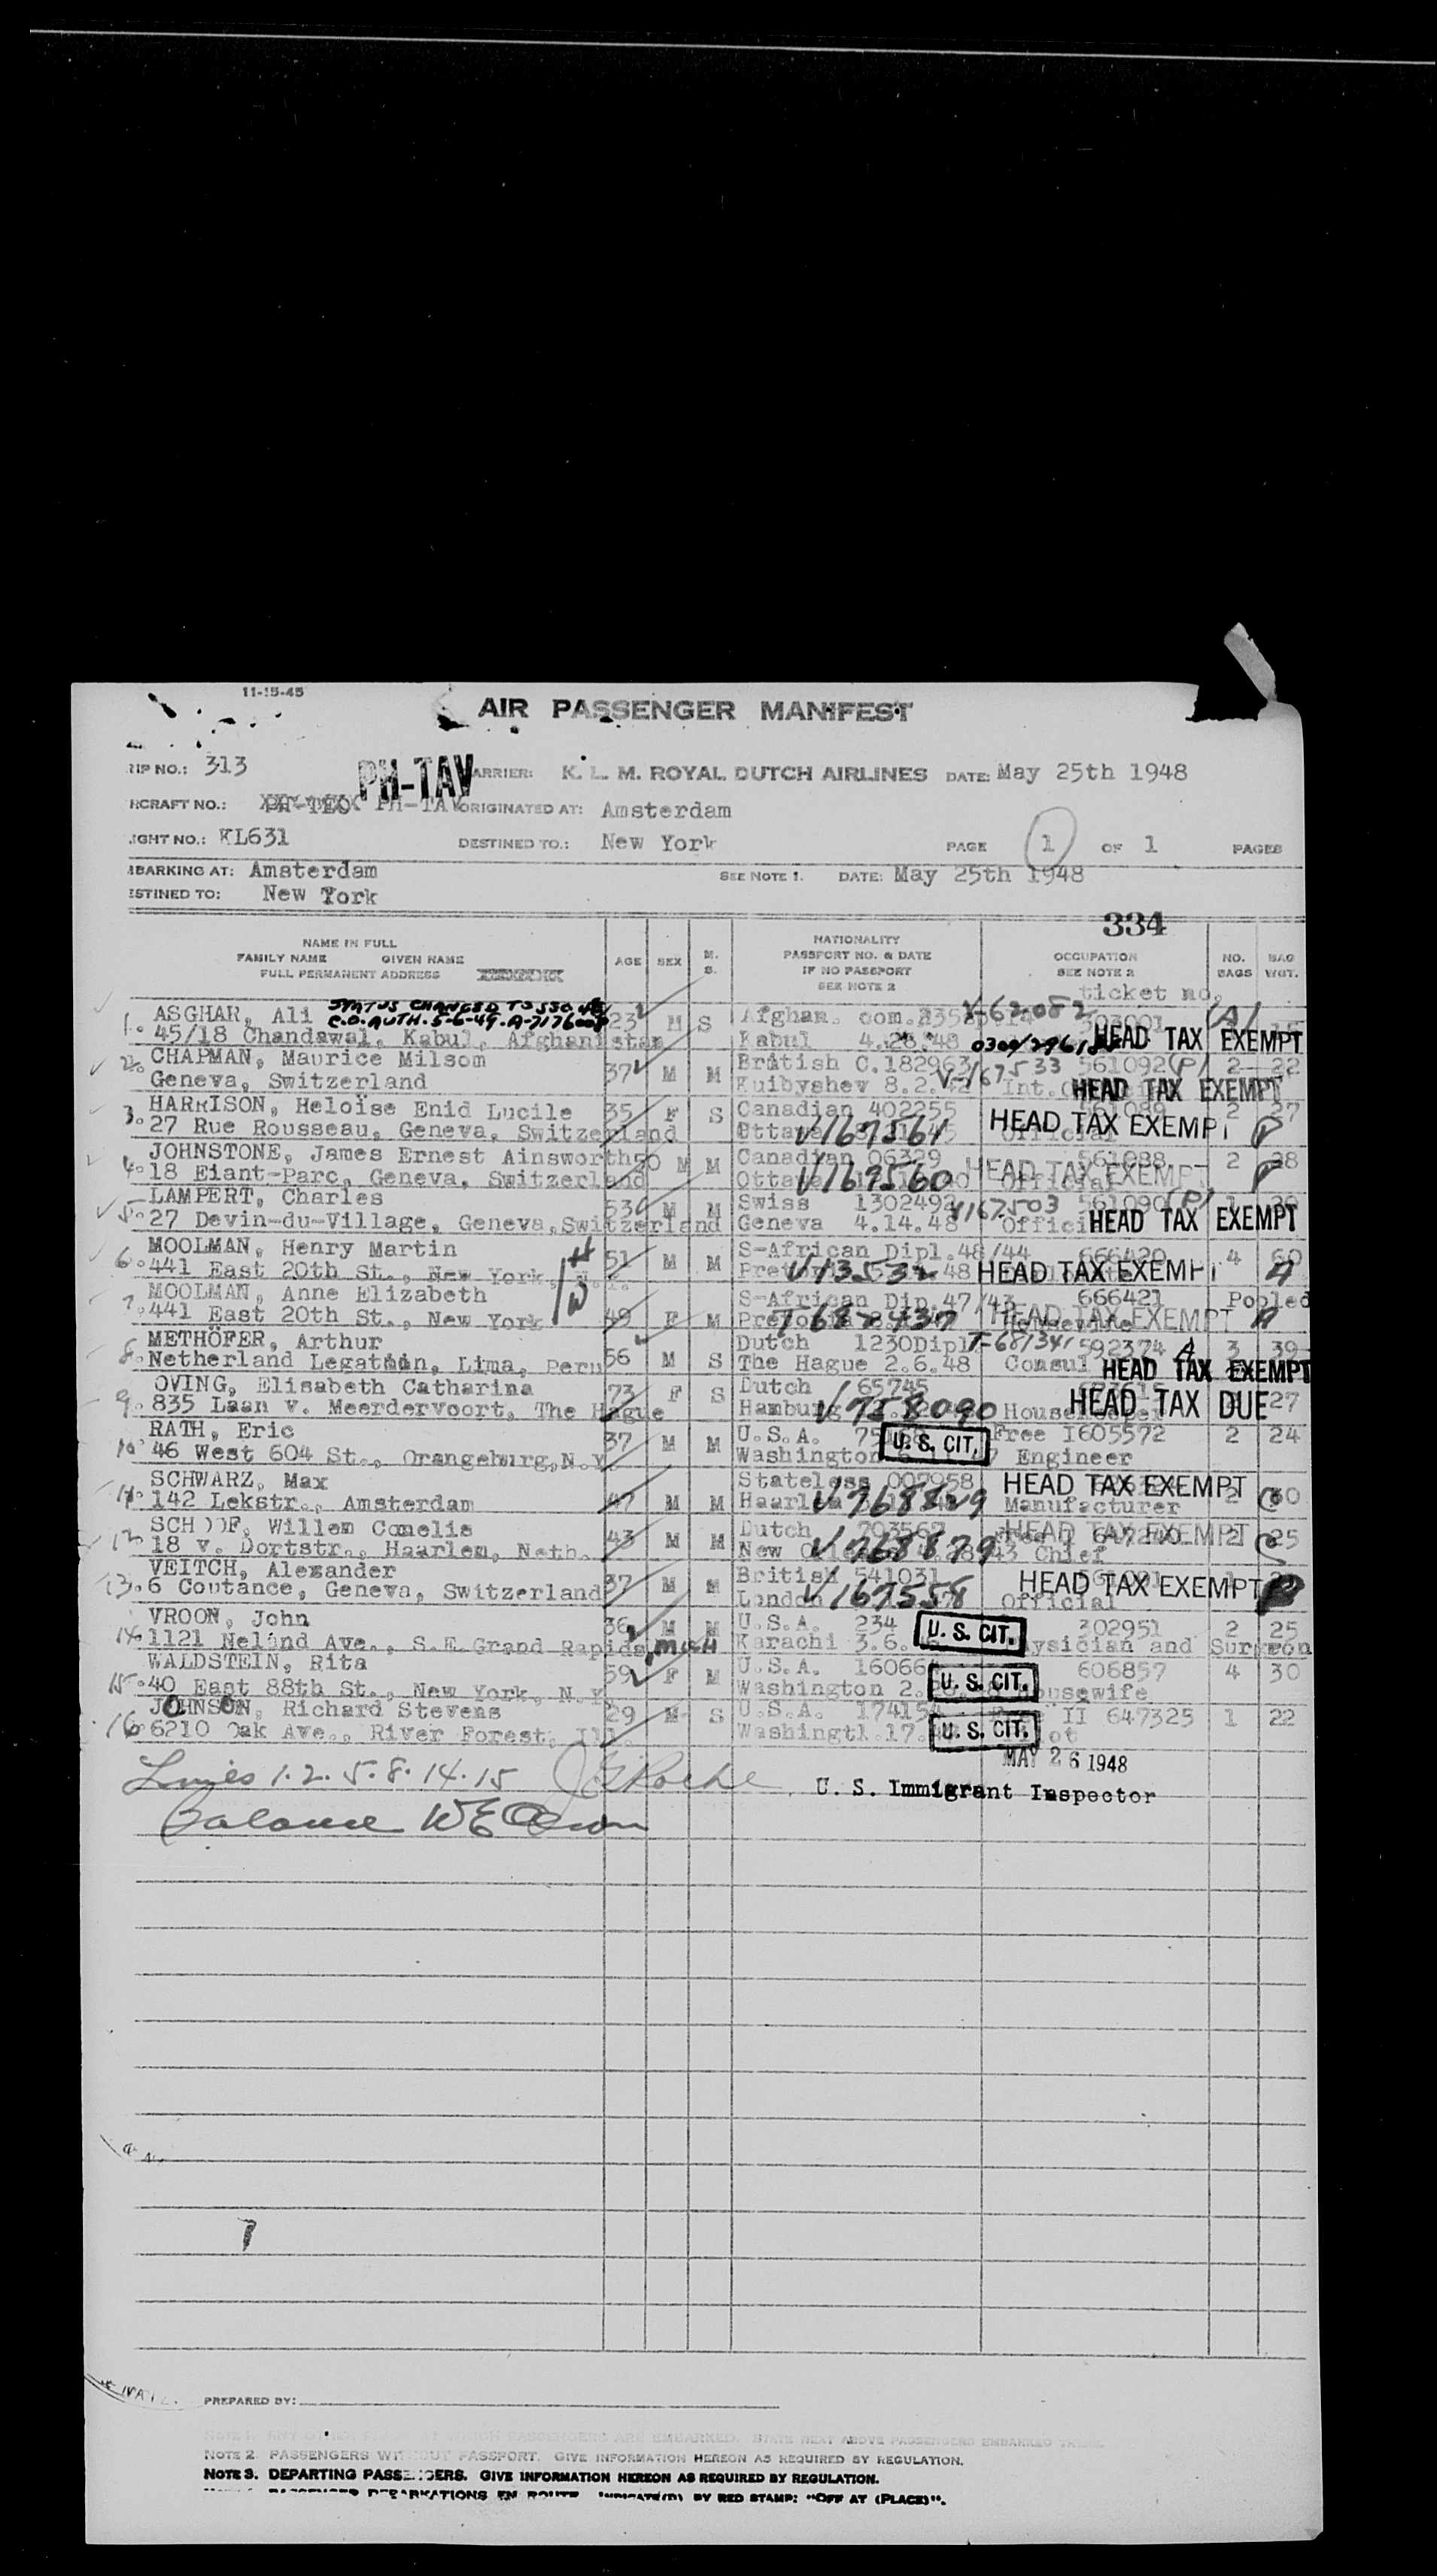 11-15-45
AIR PASSENGER MANIFEST
RIP NO.: 313 PH-TAV ARRIER: K. L. M. ROYAL DUTCH AIRLINES DATE: May 25th 1948
RCRAFT NO.: PH-TAV ORIGINATED AT: Amsterdam
IGHT NO.: KL631 DESTINED TO.: New York PAGE 1 OF 1 PAGES
MBARKING AT: Amsterdam SEE NOTE 1. DATE: May 25th 1948
ESTINED TO: New York
334
NAME IN FULL
FAMILY NAME GIVEN NAME
FULL PERMANENT ADDRESS
AGE SEX M. S.
NATIONALITY
PASSPORT NO. & DATE
IF NO PASSPORT
SEE NOTE 2
OCCUPATION
SEE NOTE 2
ticket no.
NO. BAGS
BAG WGT.
1. ASGHAR, Ali STATUS CHANGED TO 23 M S Afghan. com. V-62082 503001 (A)
C.O. AUTH. 5-6-49. A-7176008
45/18 Chandawal, Kabul, Afghanistan Kabul 4.28.48 HEAD TAX EXEMPT
2. CHAPMAN, Maurice Milsom 37 M M British C.182963 V-167533 561092 (P) 2 22
Geneva, Switzerland Kuibyshev 8.2. Int. HEAD TAX EXEMPT
3. HARRISON, Heloïse Enid Lucile 35 F S Canadian 402255 561089 2 27
27 Rue Rousseau, Geneva, Switzerland Ottawa V167561 HEAD TAX EXEMPT P
4. JOHNSTONE, James Ernest Ainsworth 50 M M Canadian 06329 561088 2 28
18 Eiant-Parc, Geneva, Switzerland Ottawa V167560 HEAD TAX EXEMPT Official P
5. LAMPERT, Charles 53 M M Swiss 1302492 V167503 561090 (P)
27 Devin-du-Village, Geneva,Switzerland Geneva 4.14.48 Offici HEAD TAX EXEMPT
6. MOOLMAN, Henry Martin 51 M M S-African Dipl.48/44 666420 4 60
441 East 20th St., New York, N.Y. H/W V13532 48 HEAD TAX EXEMPT A
7. MOOLMAN, Anne Elizabeth 49 F M S-African Dip.47/43 666421 Pooled
441 East 20th St., New York T-687437 HEAD TAX EXEMPT A
8. METHÖFER, Arthur 56 M S Dutch 1230Dipl T-681341 592374 A 3 39
Netherland Legation, Lima, Peru The Hague 2.6.48 Consul HEAD TAX EXEMPT
9. OVING, Elisabeth Catharina 73 F S Dutch 65745
835 Laan v. Meerdervoort, The Hague Hamburg V758090 Housekeeper HEAD TAX DUE 27
10. RATH, Eric 37 M M U.S.A. U.S. CIT. Free I605572 2 24
46 West 604 St., Orangeburg,N.Y Washington Engineer
11. SCHWARZ, Max 47 M M Stateless 007958 HEAD TAX EXEMPT
142 Lekstr., Amsterdam Haarlem V768829 Manufacturer 2 30
12. SCHOOF, Willem Cornelis 43 M M Dutch 703567 HEAD TAX EXEMPT 647240 2 25
18 v. Dortstr., Haarlem, Neth. New V768879 43 Chief
13. VEITCH, Alexander 37 M M British 541031 HEAD TAX EXEMPT P
6 Coutance, Geneva, Switzerland London V167558 Official
14. VROON, John 36 M M U.S.A. 234 U.S. CIT. 302951 2 25
1121 Neland Ave., S.E.Grand Rapids, MICH Karachi 3.6. ysician and Surgeon
15. WALDSTEIN, Rita 59 F M U.S.A. 16066 U.S. CIT. 606857 4 30
40 East 88th St., New York, N.Y Washington 2. ousewife
16. JOHNSON, Richard Stevens 29 M S U.S.A. 174154 U.S. CIT. II 647325 1 22
6210 Oak Ave., River Forest, Ill. Washingt1.17. ot
MAY 26 1948
Lines 1.2.5.8.14.15 J G Roche U. S. Immigrant Inspector
Balance
PREPARED BY:
NOTE 1. ANY OTHER PLACE AT WHICH PASSENGERS ARE EMBARKED. STATE NEXT ABOVE PASSENGERS EMBARKED THERE.
NOTE 2. PASSENGERS WITHOUT PASSPORT. GIVE INFORMATION HEREON AS REQUIRED BY REGULATION.
NOTE 3. DEPARTING PASSENGERS. GIVE INFORMATION HEREON AS REQUIRED BY REGULATION.
PASSENGER DEBARKATIONS EN ROUTE INDICATE(D) BY RED STAMP: "OFF AT (PLACE)".